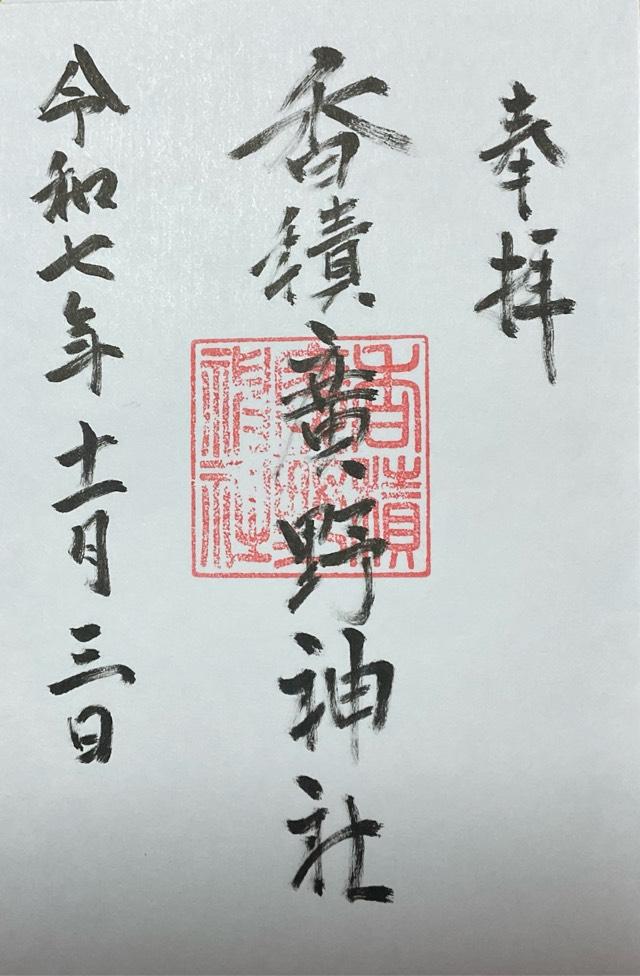 奉拝
香積廣野神社
香積廣野神社
令和七年十一月三日